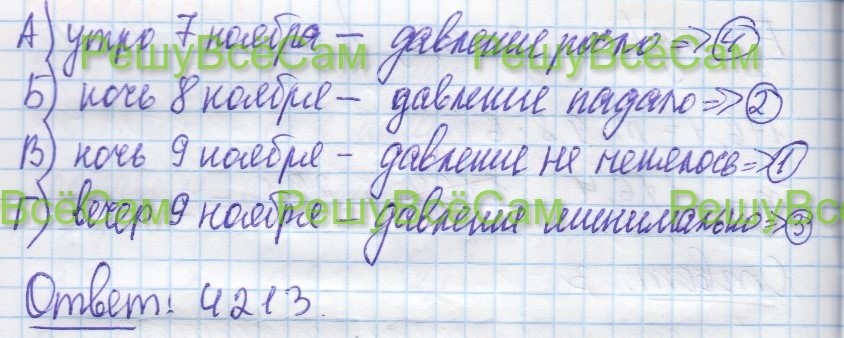 А) утро 7 ноября – давление росло => 4
РешуВсеСам РешуВсеСам
Б) ночь 8 ноября – давление падало => 2
В) ночь 9 ноября – давление не менялось => 1
ВсёСам РешуВсёСам РешуВсё
Г) вечер 9 ноября – давление минимально => 3
Ответ: 4213.